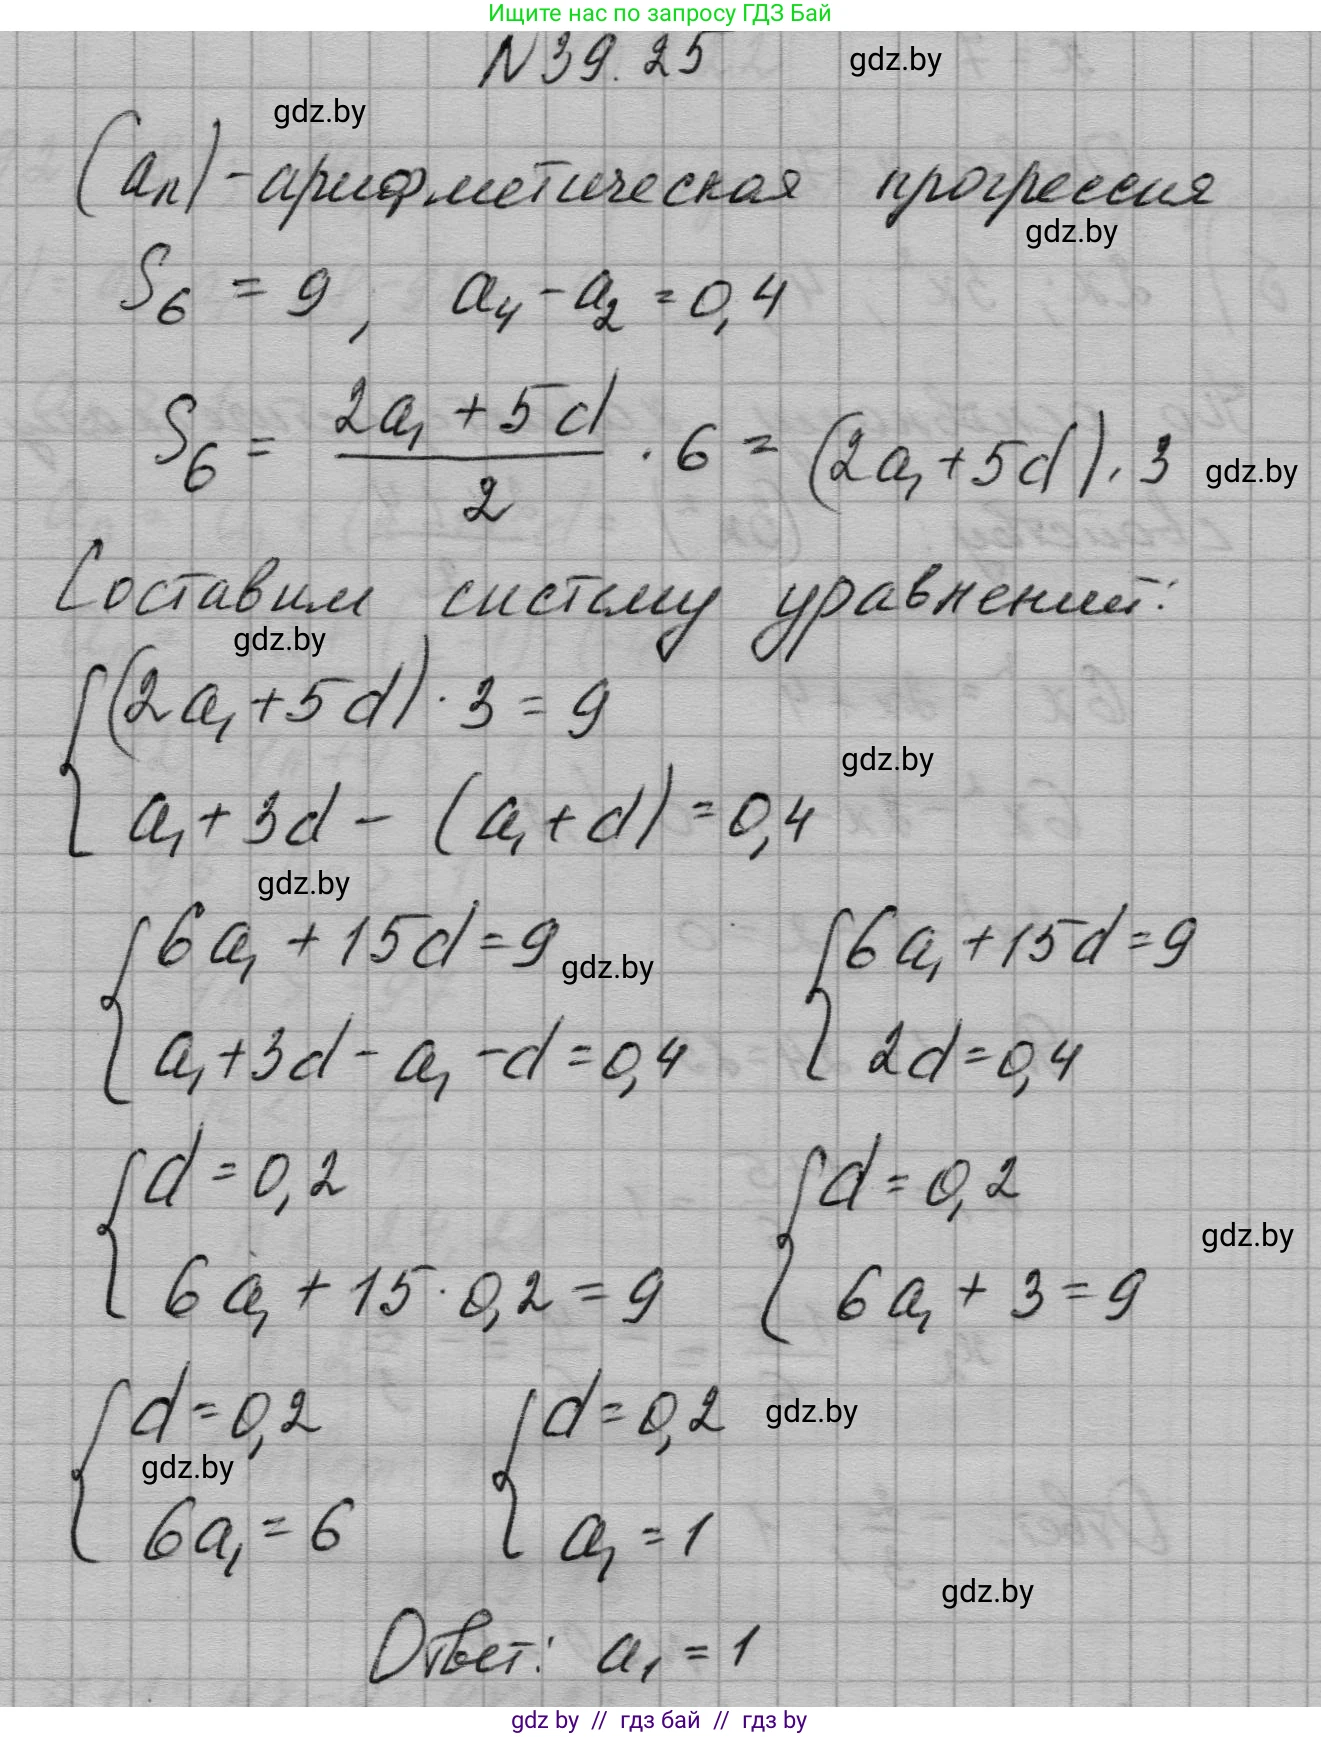 Ищите нас по запросу ГДЗ Бай
N 39.25 gdz.by
gdz.by
(aₙ) - арифметическая прогрессия
gdz.by
S₆ = 9, a₄ - a₂ = 0,4
S₆ = (2a₁ + 5d)/2 · 6 = (2a₁ + 5d) · 3 gdz.by
Составим систему уравнений:
gdz.by
{ (2a₁ + 5d) · 3 = 9
gdz.by
a₁ + 3d - (a₁ + d) = 0,4
gdz.by
{ 6a₁ + 15d = 9 gdz.by { 6a₁ + 15d = 9
a₁ + 3d - a₁ - d = 0,4 2d = 0,4
{ d = 0,2 { d = 0,2
gdz.by
6a₁ + 15 · 0,2 = 9 6a₁ + 3 = 9
{ d = 0,2 { d = 0,2 gdz.by
gdz.by
6a₁ = 6 a₁ = 1
gdz.by
Ответ: a₁ = 1
gdz by // гдз бай // гдз by